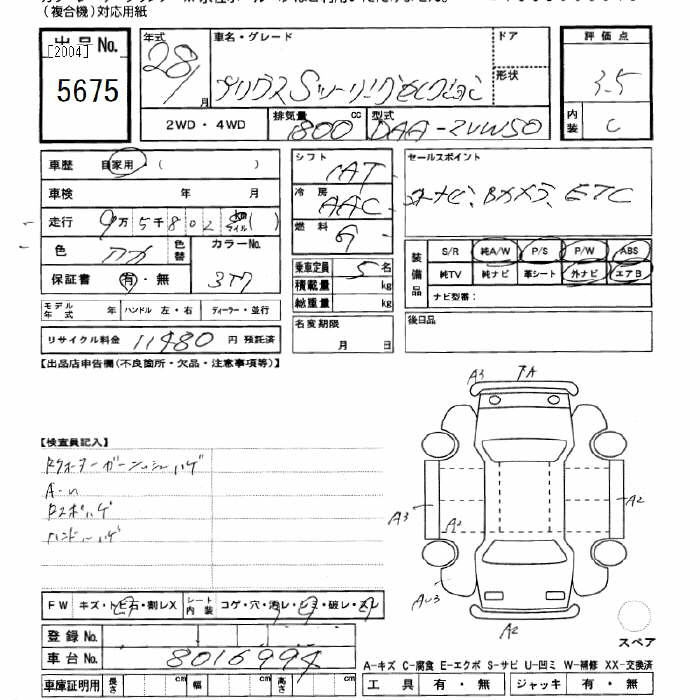 (複合機)対応用紙
出品No.
[2004]
5675
年式
28/1
月
車名・グレード
プリウス Sツーリングセレクション
ドア
形状
2WD・4WD
排気量
1800
cc
型式
DAA-ZVW50
評価点
3.5
内装
C
車歴 自家用・( )
車検 年 月
走行 9万5千802 km マイル ( )
色 アカ 色替 カラーNo. 3T7
保証書 有・無
モデル年式 年 ハンドル 左・右 ディーラー・並行
リサイクル料金 11480 円 預託済
シフト IAT
冷房 AAC
燃料 G
乗車定員 5 名
積載量 kg
総重量 kg
名変期限
月 日
セールスポイント
ナビ、Bカメラ、ETC
装備品
S/R 純A/W P/S P/W ABS
純TV 純ナビ 革シート 外ナビ エアB
ナビ型番:
後日品
【出品店申告欄(不良箇所・欠品・注意事項等)】
【検査員記入】
ハンドルハゲ
A3
A
A3
A1
A2
A2
FW キズ・トビ石・割レX シート内装 コゲ・穴・汚レ・シミ・破レ・スレ
登録No.
車台No. 8016994
車庫証明用 長さ cm 幅 cm 高さ cm
スペア
A-キズ C-腐食 E-エクボ S-サビ U-凹ミ W-補修 XX-交換済
工具 有・無 ジャッキ 有・無